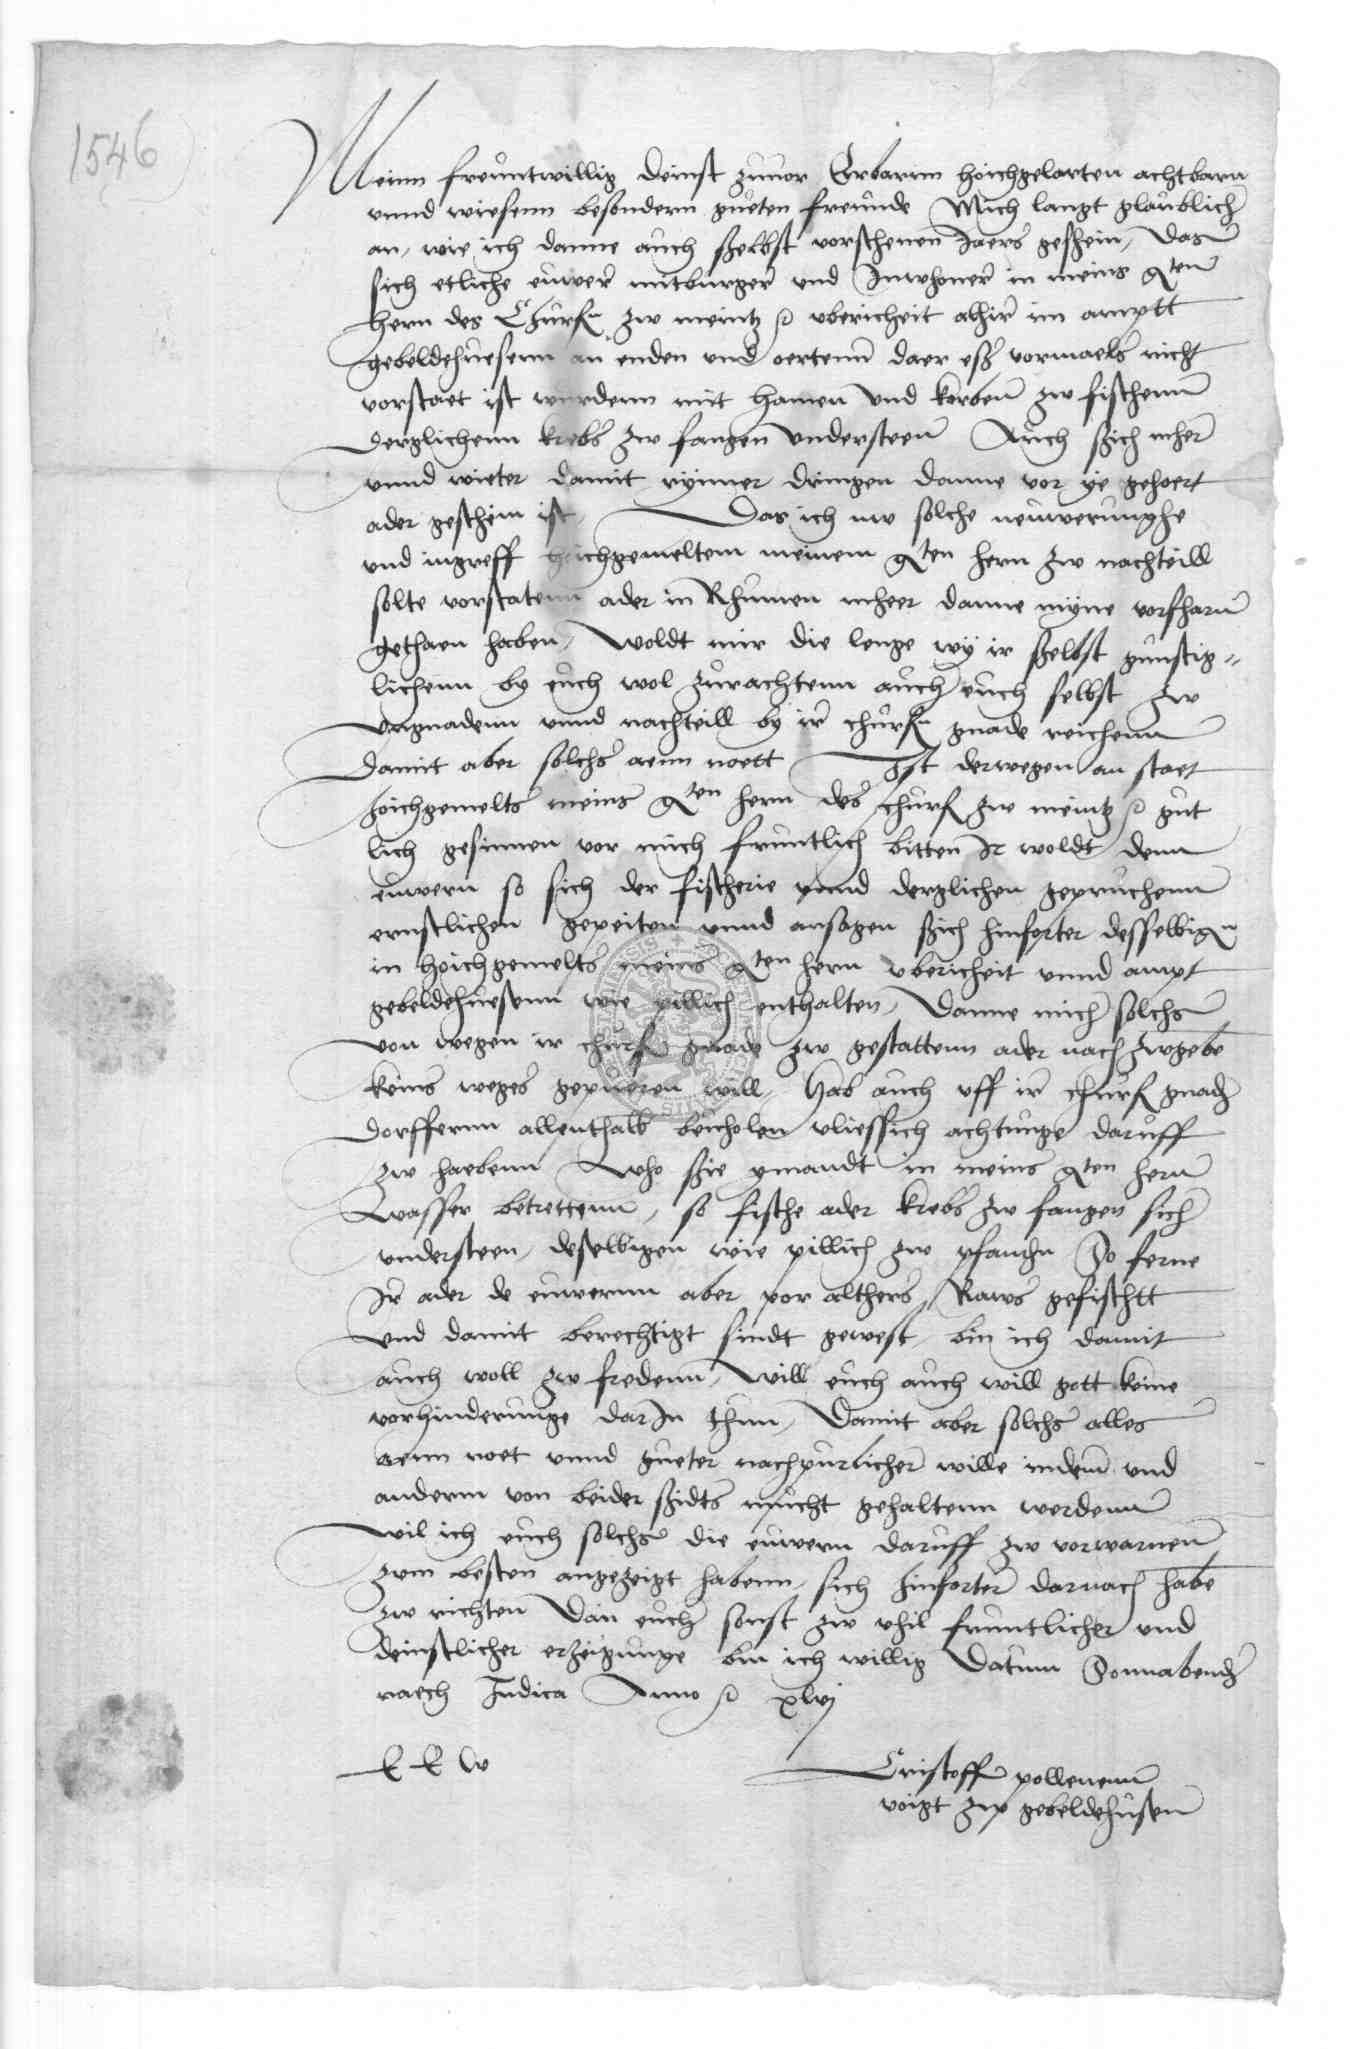 1546
Meinn freuntwillig deinst zuuor Erbarnn hoichgelarten achtbarn
vnnd wiesenn besondern gueten freunde Mich langt glaublich
an, wie ich danne auch sselbst vorschenen Jaers gesehein, das
sich etliche euwer mitburger vnd Inwhoner in meins gten
hern des Churfn zw meintz vbericheit alhir im amptt
gebeldehuesenn an enden vnd oertenn daer ess vormaels nicht
vorstaet ist wurdenn mit hamen vnd korben zw fischenn
derglichenn krebs zw fangen vndersteen Auch ssich mher
vnnd wieter damit ryinner dringen danne vor ye gehoert
ader geschein ist, Das ich nw solche neuwerunghe
vnd ingreff hoichgemeltem meinem gten hern zw nachteill
solte vorstatenn ader in Rhumen mheer danne myne vorfharn
gethaen haben, woldt mir die lenge wy ir sselbst gunstig-
lichenn by euch wol zurachtenn auch euch selbst zw
vngnadenn vnnd nachteill by ir churfn gnade reichenn
Damit aber solchs aenn noett Ist derwegen an staet
hoichgemelts meins gten hern des churf zw meintz gut
lich gesinnen vor mich fruntlich bitten Ir woldt denn
euwern so sich der fischerie vnnd derglichen gepruchenn
ernstlichen gepeiten vnnd ansagen ssich hinforter desselbign
in hoichgemelts meins gten hern vbericheit vnnd ampt
gebeldehuesenn wie pillich enthalten, Danne mich solchs
von wegen ir churf gnade zw gestattenn ader nach zwgebe
keins weges gepueren will, Hab auch vff ir churf gnad
dorffernn allenthalb beuholen vliessich achtunge daruff
zw haebenn Who ssie ymandt in meins gten hern
Wasser betrettenn, so fische ader krebs zw fangen sich
vndersteen, deselbigen wie pillich zw pfandn So ferne
Ir ader de euwernn aber vor althers Raws gefischtt
vnd damit berechtigt sindt gewest, bin ich damit
auch woll zw fredenn, will euch auch will gott keine
vorhinderunge dar In thun, Damit aber solchs alles
aenn noet vnnd gueter nachpurlicher wille indem vnd
anderm von beider ssidts mucht gehaltenn werdenn
wil ich euch solchs die euwern daruff zw vorwarnen
zum besten angezeigt habenn, sich hinforter darnach habe
zw richten Dan euch sonst zw vhil fruntlicher vnd
deinstlicher erzeigunge bin ich willig Datum Sonnabends
naech Judica Anno xlvj
E E W
Cristoff pollenenn
voigt zw gebeldehusen